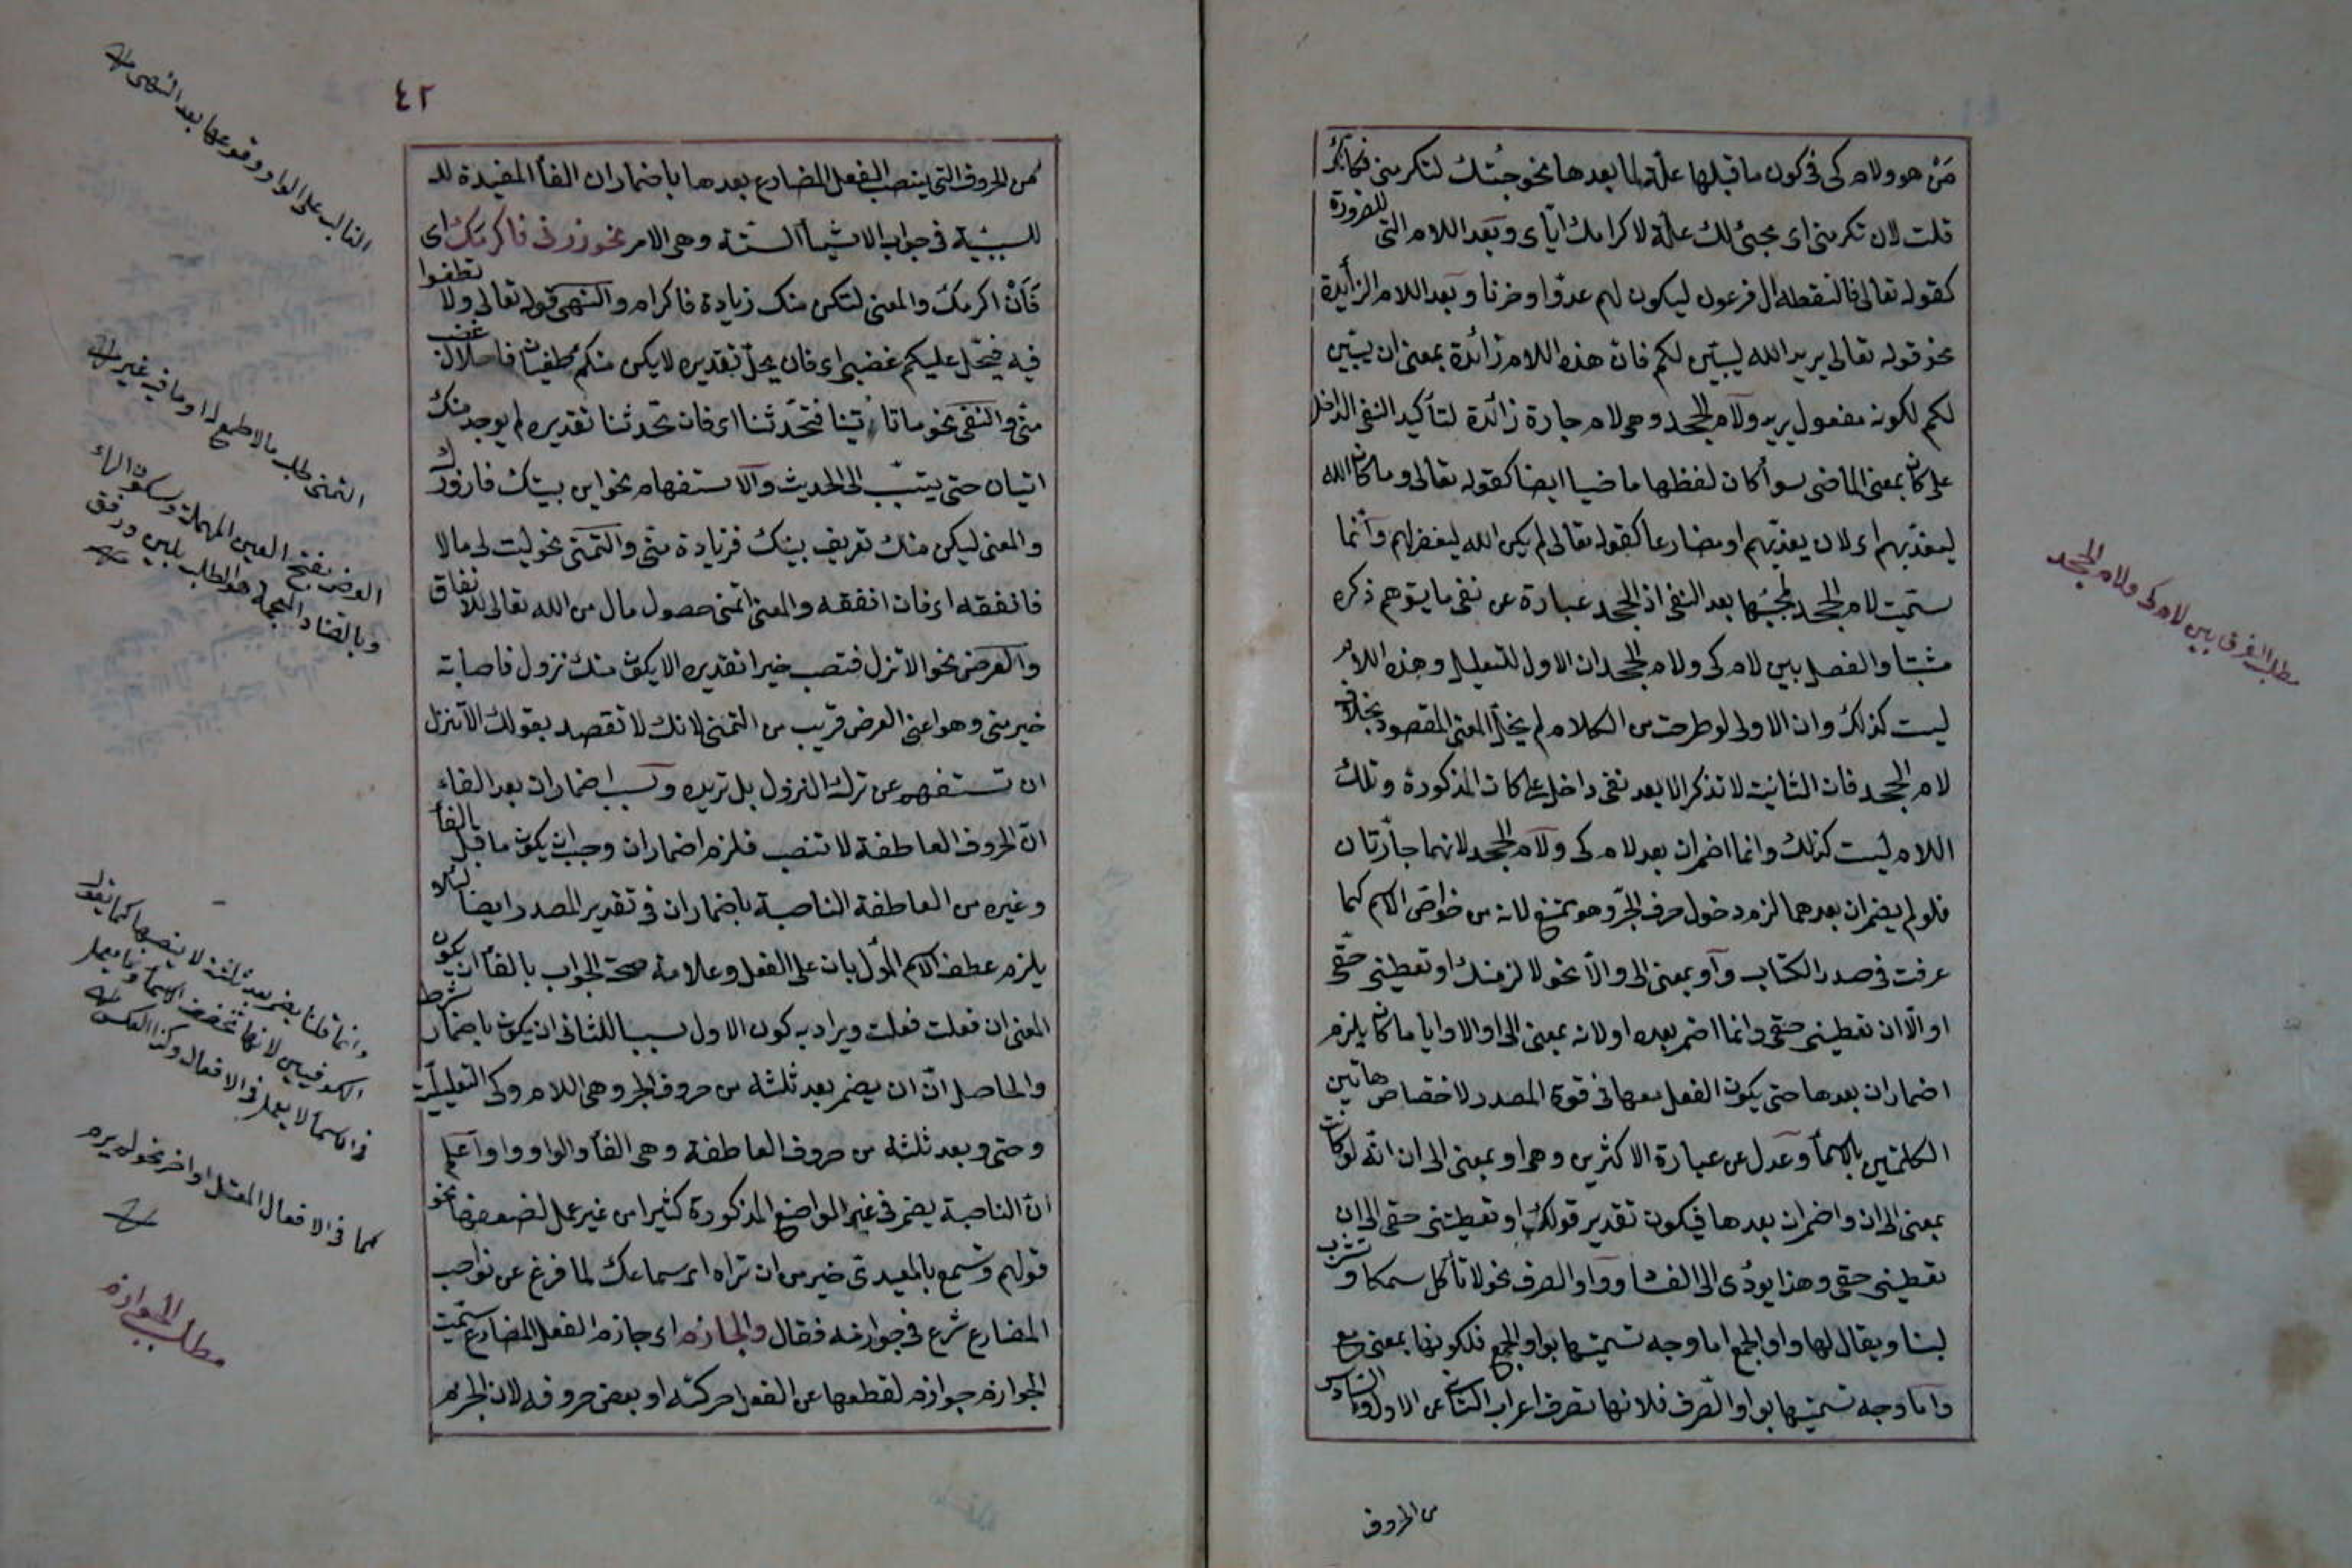 مَنْ هو ولام كى فى كون ما قبلها علّة لما بعدها نحو جئتك لتكرمنى فكانك
قلت لان تكرمنى اى مجيئى لك علة لاكرامك ايّاى وبعد اللام التى للصرورة
كقوله تعالى فالتقطه ال فرعون ليكون لهم عدوّا وحزنا وبعد اللام الزائدة
نحو قوله تعالى يريد الله ليبيّن لكم فان هذه اللام زائدة بمعنى ان يبيّن
لكم لكونه مفعول يريد ولام الجحد وهى لام جارة زائدة لتأكيد النفى الداخل
على كان بمعنى الماضى سوأ كان لفظها ماضيا ايضا كقوله تعالى وما كان الله
ليعذّبهم اى لان يعذّبهم او مضارعا كقوله تعالى لم يكن الله ليغفر لهم وانّما
سمّيت لام الجحد لمجيئها بعد النفى اذ الجحد عبارة عن نفى ما يتوهم ذكره
مثبتا والفصل بين لام كى ولام الجحد ان الاول للتعليل وهذه اللام
ليست كذلك وان الاولى لو طرحت من الكلام لم يختلّ المعنى المقصود بخلاف
لام الجحد فان الثانية لا تذكر الا بعد نفى داخل على كان المذكورة وتلك
اللام ليست كذلك وانما اضمر ان بعد لام كى ولام الجحد لانهما جارّتان
فلو لم يضمر ان بعدهما لزم دخول حرف الجرّ وهو ممتنع لانه من خواصّ الاسم كما
عرفت فى صدر الكتاب وآو بمعنى الى والاّ نحو لالزمنك او تعطينى حقّى
او الّا ان تعطينى حقى وانما اضمر بعده او لانه بمعنى الى او الا وايا ما كان يلزم
اضمار ان بعدها حتى يكون الفعل معها فى قوة المصدر لاختصاص هاتين
الكلمتين بالاسمأ وعدل عن عبارة الاكثرين وهى او بمعنى الى ان انّه لو كانت
بمعنى الى ان واضمر ان بعدها فيكون تقدير قولك او تعطينى حقى الى ان
تعطينى حقى وهذا يودى الى الفسأ وواو الصرف نحو لا تأكل سمكا وتشرب
لبنا ويقال لها واو الجمع اما وجه تسميتها بواو الجمع فلكونها بمعنى مع
واما وجه تسميتها بواو الصّرف فلانها تصرف اعراب الثانى عن الاول والسادس
من الحروف
مطلب الفرق بين لام كى ولام الجحد
٤٢
من الحروف التى ينتصب الفعل المضارع بعدها باضمار ان الفأ المفيدة لل
للسببيّة فى جواب الاشيأ الستّة وهى الامر نحو زرنى فاكرمَك اى
فَاَنْ اكرمك والمعنى لتكن منك زيادة فاكرام والنهى قوله تعالى ولا تطغوا
فيه فيحلّ عليكم غضبى اى فان يحلّ تقديره لا يكن منكم طغيان فاحلال غضب
منّى والنفى نحو ما تأتينا فتحدّثنا اى فان تحدثنا تقديره لم يوجد منك
اتيان حتى يتسبّب الى الحديث والاستفهام نحو اين بيتك فازورك
والمعنى ليكن منك تعريف بيتك فزيادة منّى والتمنّى نحو ليت لى مالا
فانفقه اى فان انفقه والمعنى اتمنى حصول مال من الله تعالى للانفاق
والعرض نحو الا تنزل فتصب خيرا تقديره الا يكون منك نزول فاصابة
خير منّى وهو اعنى العرض قريب من التمنى لانك لا تقصد بقولك الا تنزل
ان تستفهم عن ترك النزول بل تريده وسبب اضمار ان بعد الفاء
انّ الحروف العاطفة لا تنصب فلزم اضمار ان وجب ان يكون ما قبل الفأ
وغيره من العاطفة الناصبة باضمار ان فى تقدير المصدر ايضا لئلا
يلزم عطف الاسم المأول بان على الفعل وعلامة صحة الجواب بالفأ ان يكون
المعنى ان فعلت فعلت ويراد به كون الاول سببا للثانى ان يكون باضمار شرط
والحاصل انّ ان يضمر بعد ثلثة من حروف الجر وهى اللام وكى التعليليّة
وحتى وبعد ثلثة من حروف العاطفة وهى الفأ والواو واو اعلم
انّ الناصبة يضمر فى غير المواضع المذكورة كثيرا من غير عمل لضعفها نحو
قولهم وتسمع بالمعيدى خير من ان تراه اى سماعك لما فرغ عن نواصب
المضارع شرع فى جوازمه فقال والجازم اى جازم الفعل المضارع سمّيت
الجوازم جوازم لقطعها عن الفعل حركته او بعض حروفه لان الجزم
الغالب على الواو وقوعها بعد النهى
التمنى طلب ما لا طمع له او ما فيه غير
العرض بفتح العين المهملة وسكون الراء
وبالضاد المعجمة هو الطلب بلين ورفق
وانما قلنا يضمر بعد ثلثة لا ينصبها كما يقول
الكوفيين لانها تخفض الاسمأ وما يعمل
فى الاسمأ لا يعمل فى الافعال وكذا العكس
كما فى الافعال المعتل اواخر نحو لم يرم
مطلب الجوازم